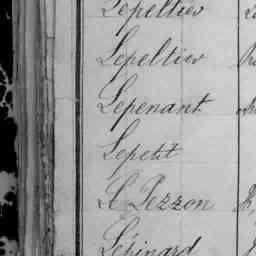 Lepeltier
Lepeltier
Lepenant
Lepetit
Le Pezzon
Lépinard